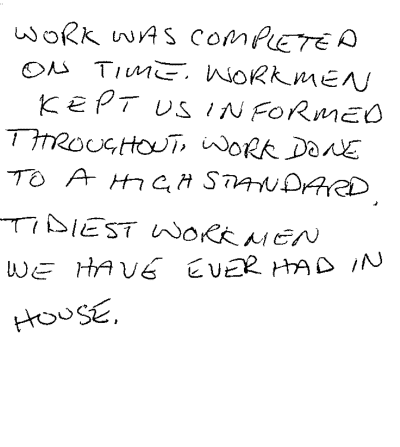 WORK WAS COMPLETED
ON TIME. WORKMEN
KEPT US INFORMED
THROUGHOUT, WORK DONE
TO A HIGH STANDARD.
TIDIEST WORKMEN
WE HAVE EVER HAD IN
HOUSE.